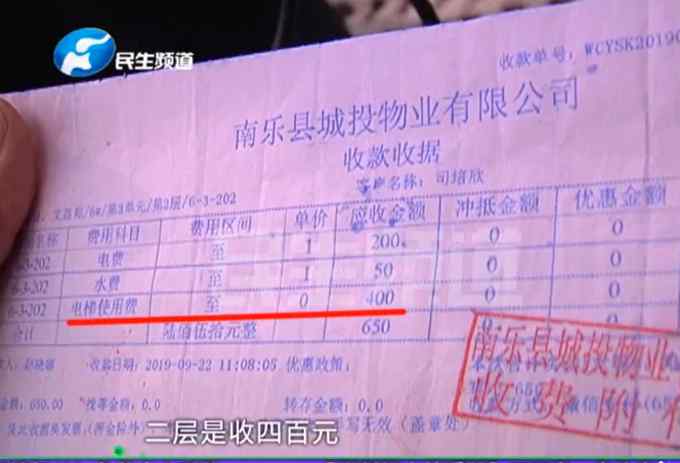 民生频道
收款单号：WCYSK2019
南乐县城投物业有限公司
收款收据
客户名称：司培欣
/第3单元/第2层/6-3-202
名称 费用科目 费用区间 单价 应收金额 冲抵金额 优惠金额
-3-202 电费 至 1 200 0 0
-3-202 水费 至 1 50 0 0
6-3-202 电梯使用费 至 0 400 0 0
合计 陆佰伍拾元整 650
收款日期：2019-09-22 11:08:05 优惠政策：
金额：650.00 找零金额：0.0 转存金额：0.0
写无效（盖章处）
南乐县城投物业
收费
二层是收四百元